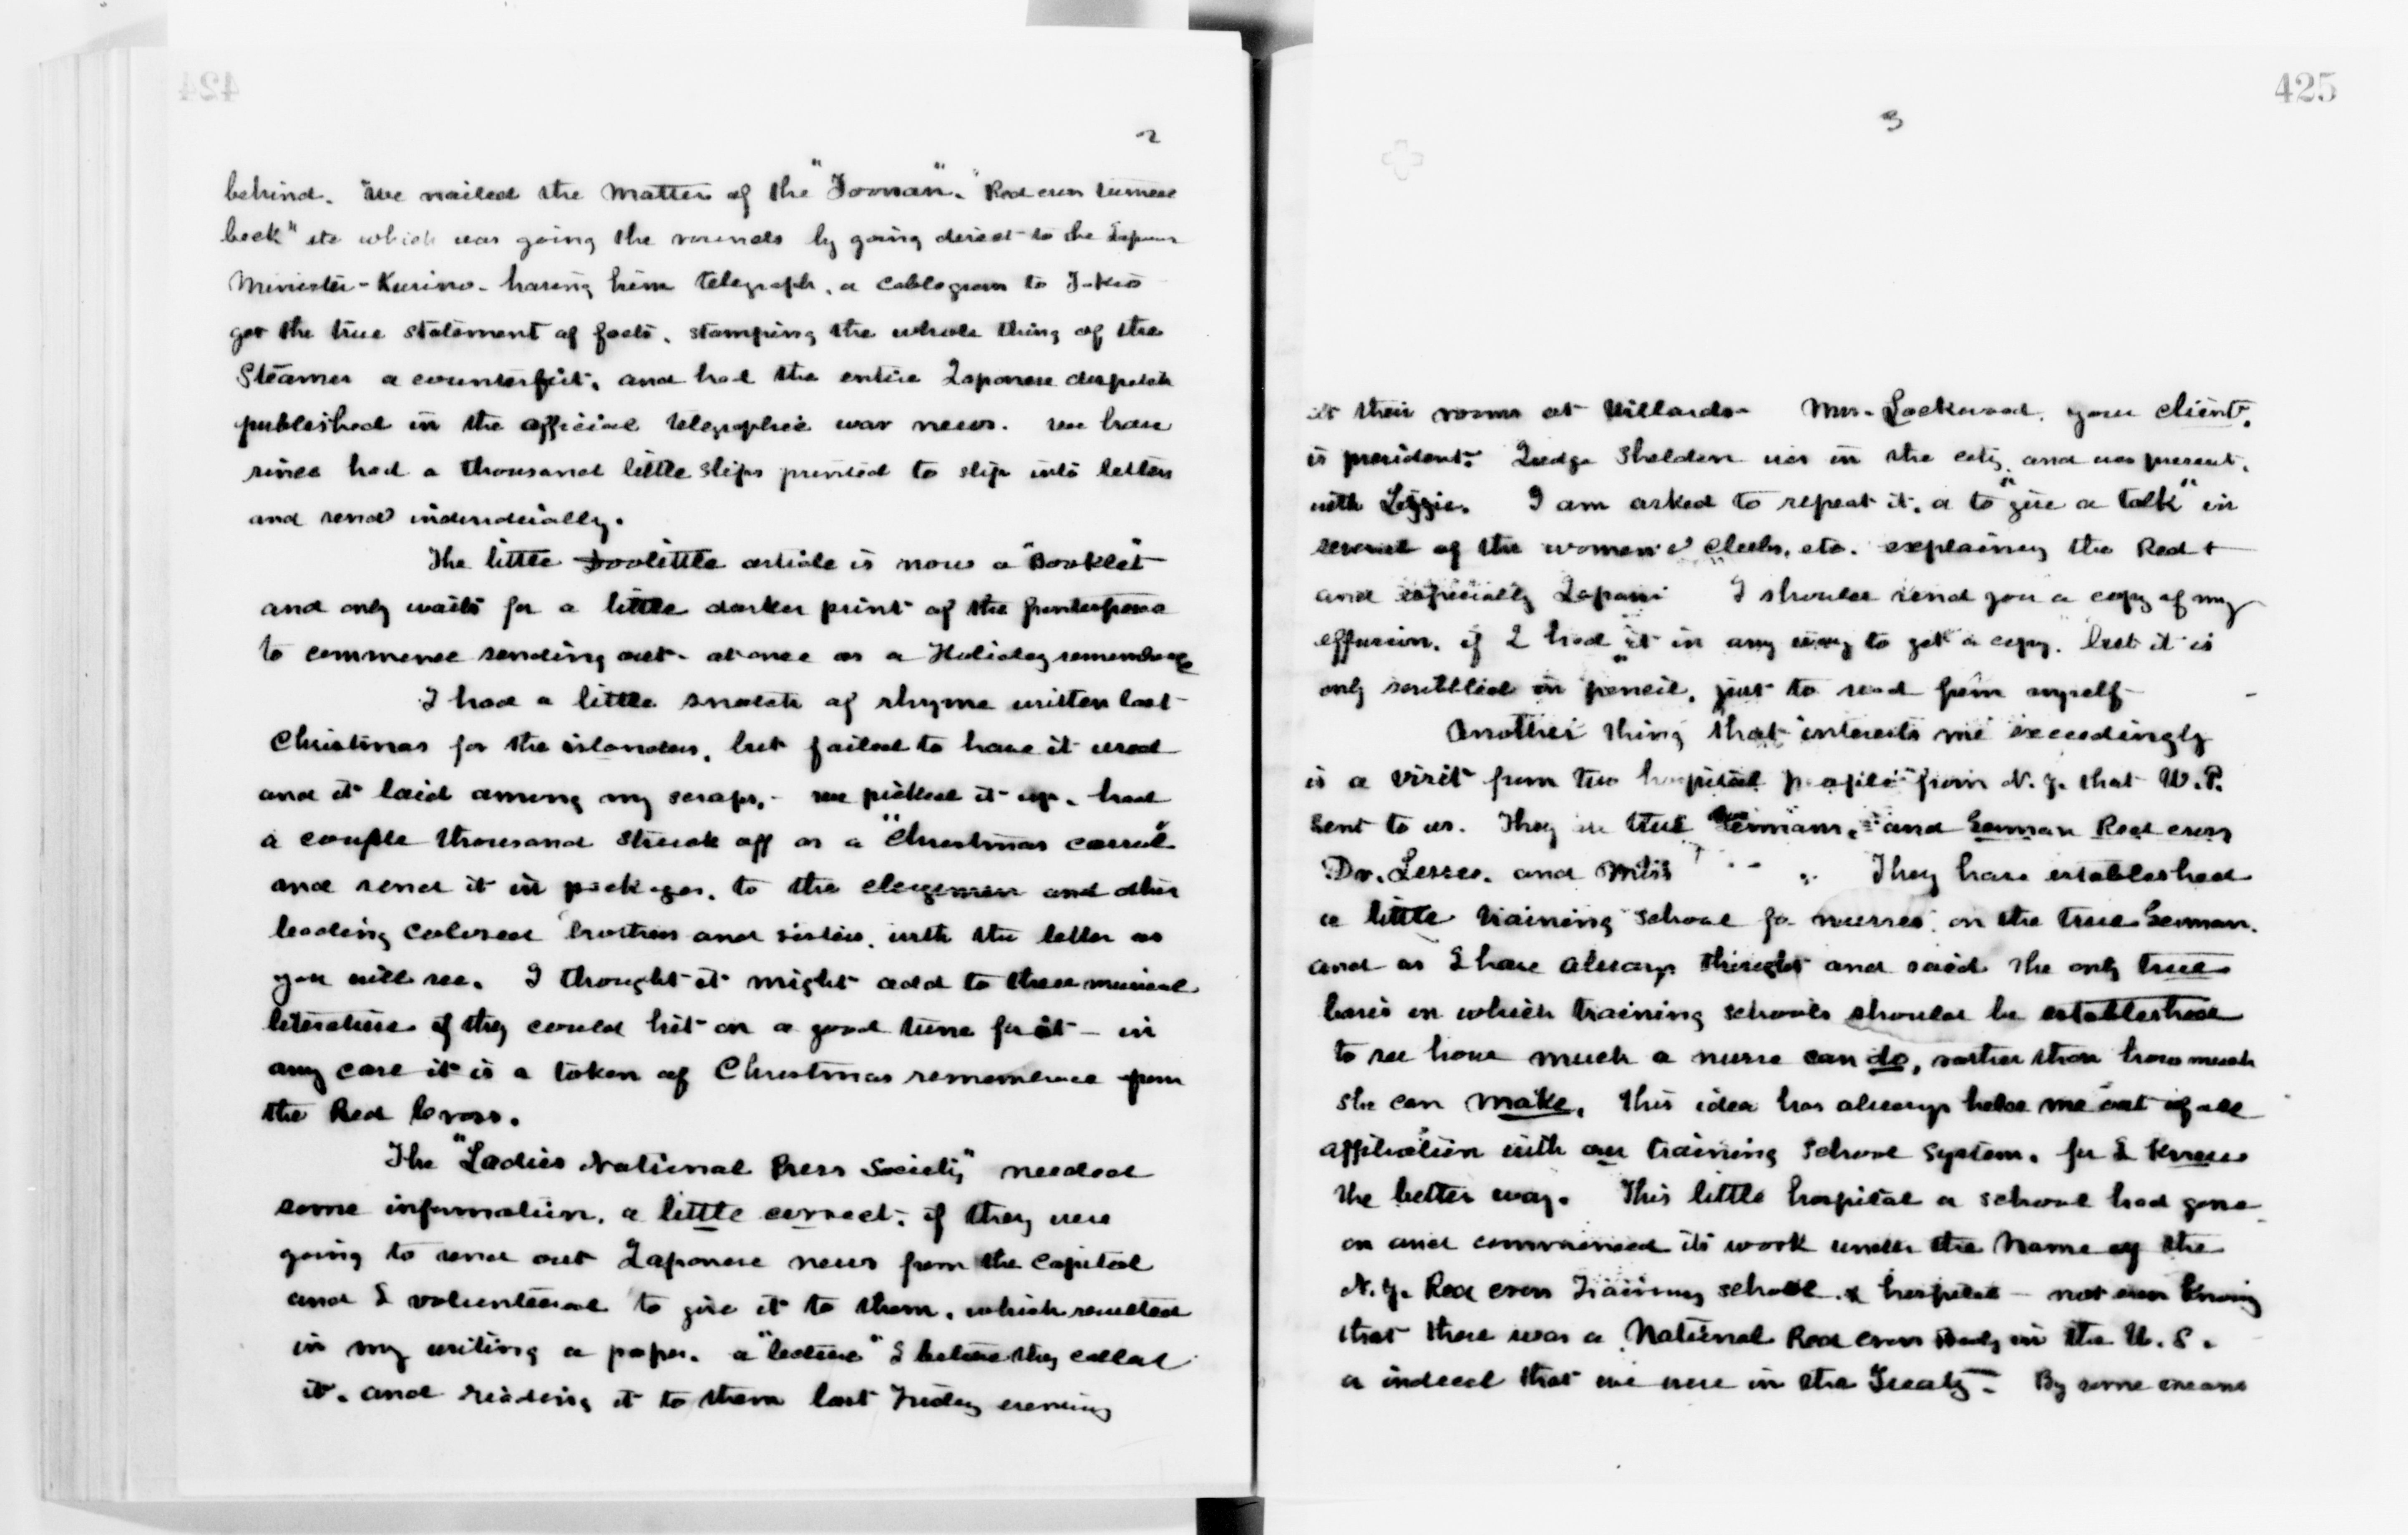 424
2
behind. "We nailed the matter of the "Toonan". "Red cross turned
back" etc which was going the rounds by going direct to the Japanese
Minister - Kurino - having him telegraph, a cablegram to Tokio
got the true statement of facts, stamping the whole thing of the
Steamer a counterfeit, and had the entire Japanese despatch
published in the official telegraphic war news. we have
since had a thousand little slips printed to slip into letters
and send individually.
The little Doolittle article is now a "Booklet"
and only waits for a little darker print of the frontispiece
to commence sending out - at once as a Holiday remembrance
I had a little snatch of rhyme written last
Christmas for the islanders, but failed to have it used
and it laid among my scraps, - we picked it up, had
a couple thousand struck off as a "Christmas carrol"
and send it in packages, to the clergymen and other
leading colored brothers and sisters, with the letter as
you will see. I thought it might add to their musical
literature if they could hit on a good tune for it - in
any case it is a token of Christmas remembrance from
the Red Cross.
The "Ladies National Press Society" needed
some information, a little correct, if they were
going to send out Japanese news from the Capital
and I volunteered to give it to them, which resulted
in my writing a paper, a "lecture" I believe they called
it, and reading it to them last Friday evening
425
3
at their rooms at Willards - Mrs. Lockwood, your client,
is president. Judge Sheldon was in the city, and was present,
with Lizzie. I am asked to repeat it, or to "give a talk" in
several of the women's clubs, etc. explaining the Red +
and especially Japan. I should send you a copy of my
effusion, if I had it in any way to get a copy, but it is
only scribbled in pencil, just to read from myself -
Another thing that interests me exceedingly
is a visit from two hospital people from N.Y. that W.P.
sent to us. They are true Germans, and German Red cross
Dr. Lesser, and Miss " " They have established
a little training school for nurses, on the true German,
and as I have always thought and said the only true
basis on which training schools should be established
to see how much a nurse can do, rather than how much
she can make. This idea has always held me out of all
affiliation with our training school system, for I knew
the better way. This little hospital or school had gone
on and commenced its work under the name of the
N.Y. Red cross Training school & hospital - not even knowing
that there was a National Red cross body in the U.S.
or indeed that we were in the Treaty - By some means